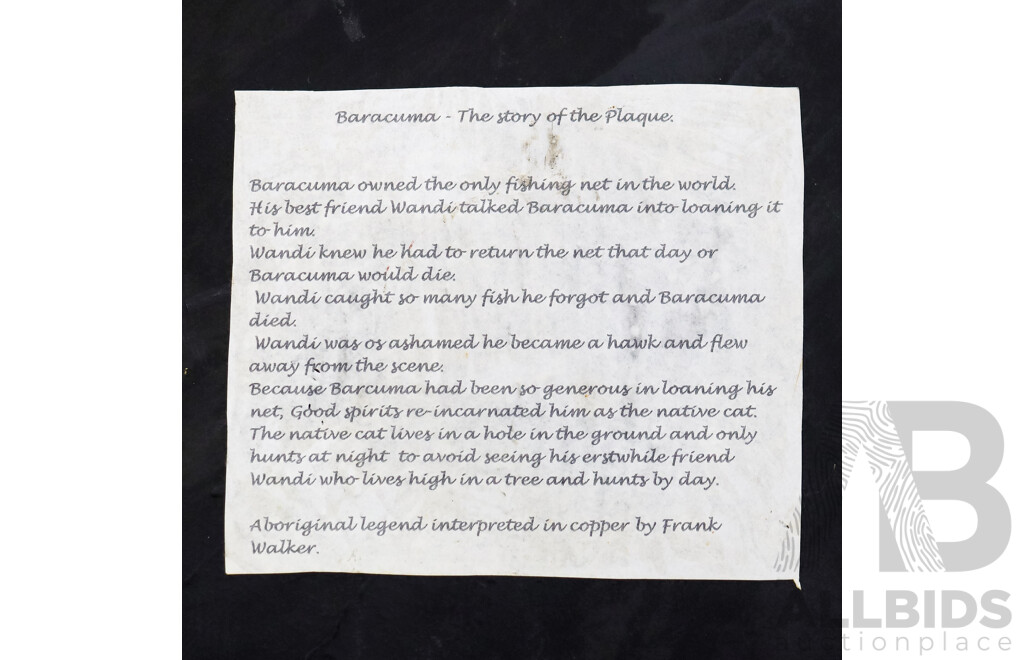 Baracuma - The story of the Plaque.
Baracuma owned the only fishing net in the world.
His best friend Wandi talked Baracuma into loaning it
to him.
Wandi knew he had to return the net that day or
Baracuma would die.
Wandi caught so many fish he forgot and Baracuma
died.
Wandi was os ashamed he became a hawk and flew
away from the scene.
Because Barcuma had been so generous in loaning his
net, Good spirits re-incarnated him as the native cat.
The native cat lives in a hole in the ground and only
hunts at night to avoid seeing his erstwhile friend
Wandi who lives high in a tree and hunts by day.
Aboriginal legend interpreted in copper by Frank
Walker.
AB
ALLBIDS
auctionplace